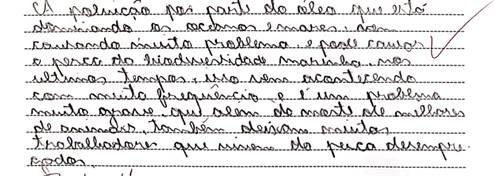 A poluição por parte do óleo que está
dominando os oceanos e mares, vem
causando muito problema e pode causar
a pesca da biodiversidade marinha, nos
ultimos tempos, isso vem acontecendo
com muita frequência e é um problema
muito grave, que além da morte de milhores
de animais, também deixam muitos
trabalhadores que vivem da pesca desempre-
gados.